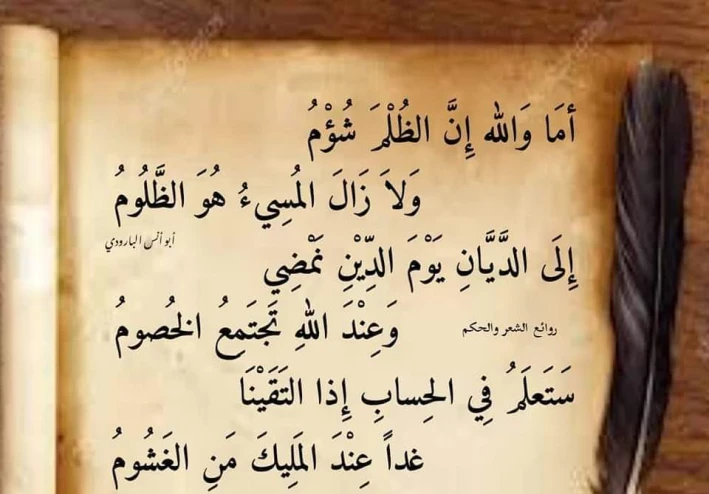 أمَا وَالله إِنَّ الظُلْمَ شُؤْمُ
وَلاَ زَالَ المُسِيءُ هُوَ الظَّلُومُ
أبو أنس البارودي
إِلَى الدَّيَّانِ يَوْمَ الدِّيْنِ نَمْضِي
وَعِنْدَ اللهِ تَجتَمِعُ الخُصومُ
روائع الشعر والحكم
سَتَعلَمُ فِي الحِسابِ إِذا التَقَيْنَا
غداً عِنْدَ المَلِيكَ مَنِ الغَشُومُ